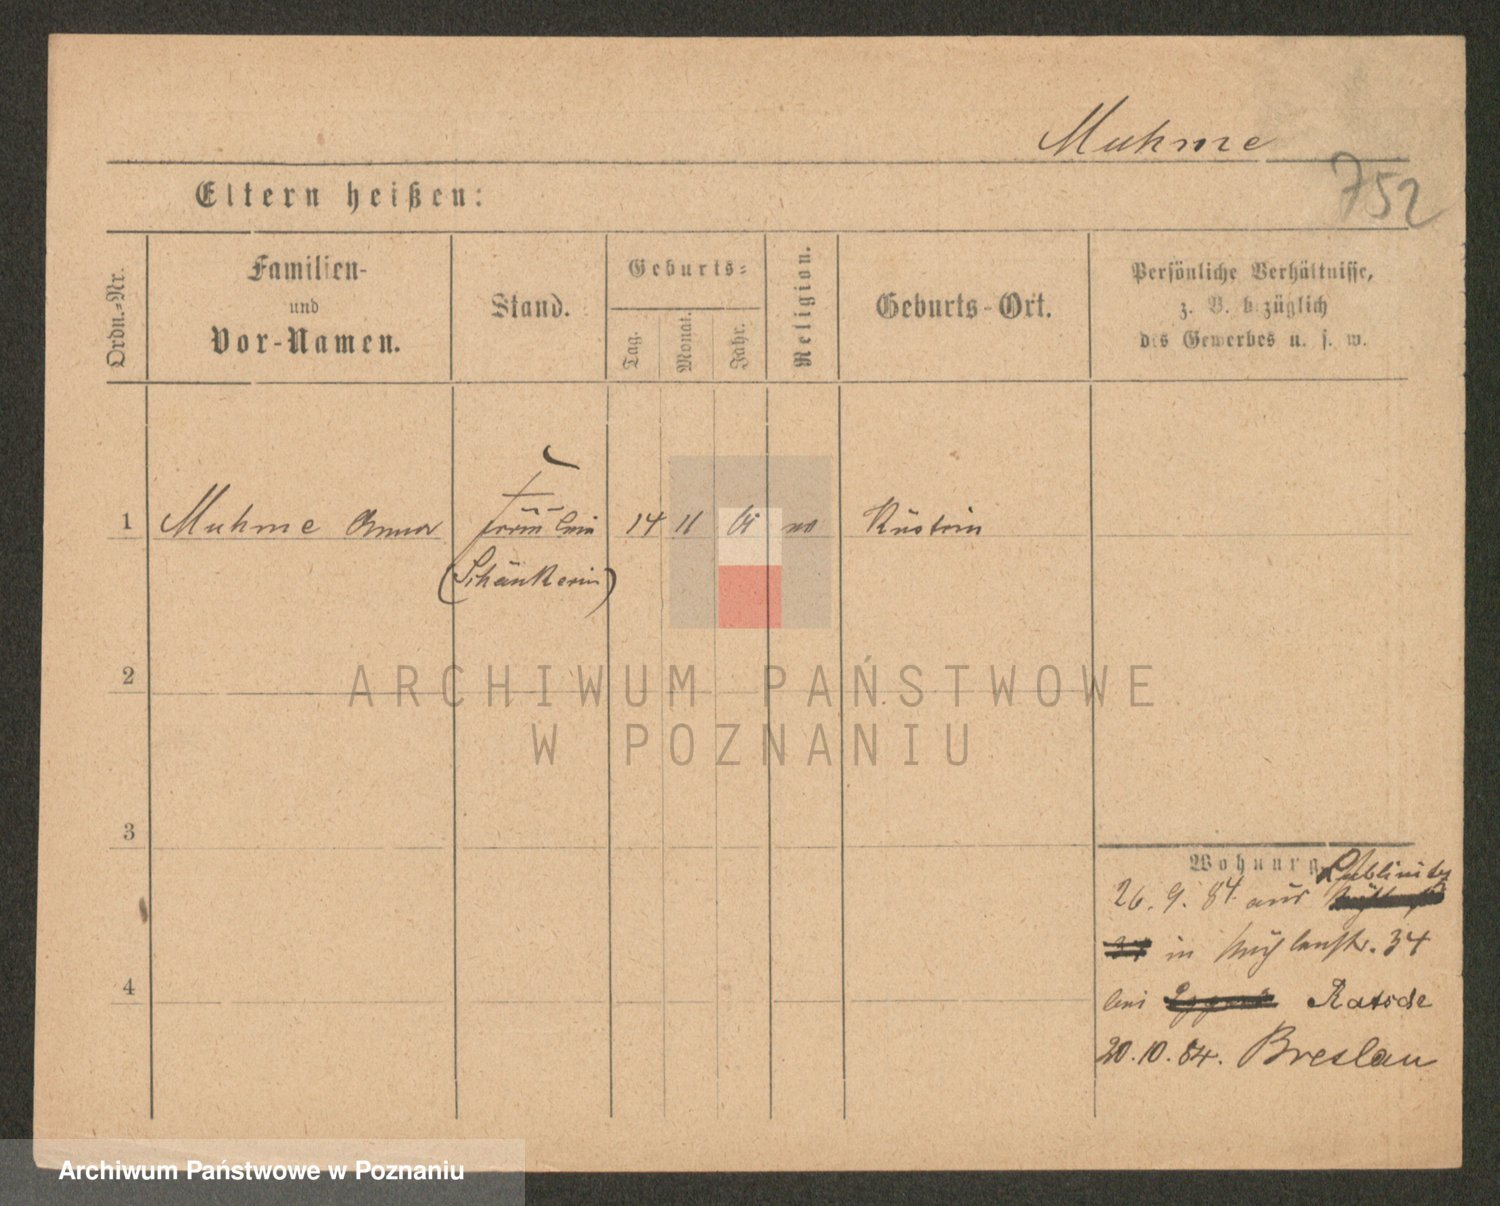 Muhme
752
Eltern heißen:
Ordn.-Nr.
Familien-
und
Vor-Namen.
Stand.
Geburts-
Tag.
Monat.
Jahr.
Religion.
Geburts-Ort.
Persönliche Verhältnisse,
z. B. bezüglich
des Gewerbes u. s. w.
1 Muhme Anna Fräulein 14 11 Küstrin
(Schänkerin)
2
3
4
Wohnung
26. 9. 84. aus Lublinitz
in Mühlenstr. 34
bei Ratsde
20. 10. 84. Breslau
ARCHIWUM PAŃSTWOWE
W POZNANIU
Archiwum Państwowe w Poznaniu